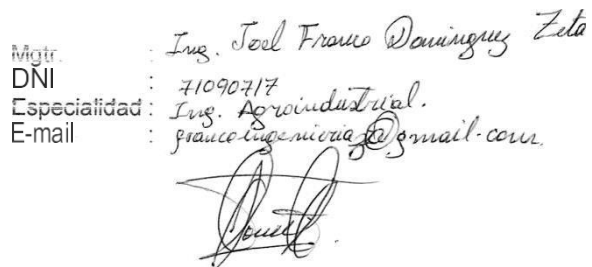 Mgtr. : Ing. Joel Franco Dominguez Zeta
DNI : 71090717
Especialidad : Ing. Agroindustrial.
E-mail : francoingenieriaz@gmail.com.